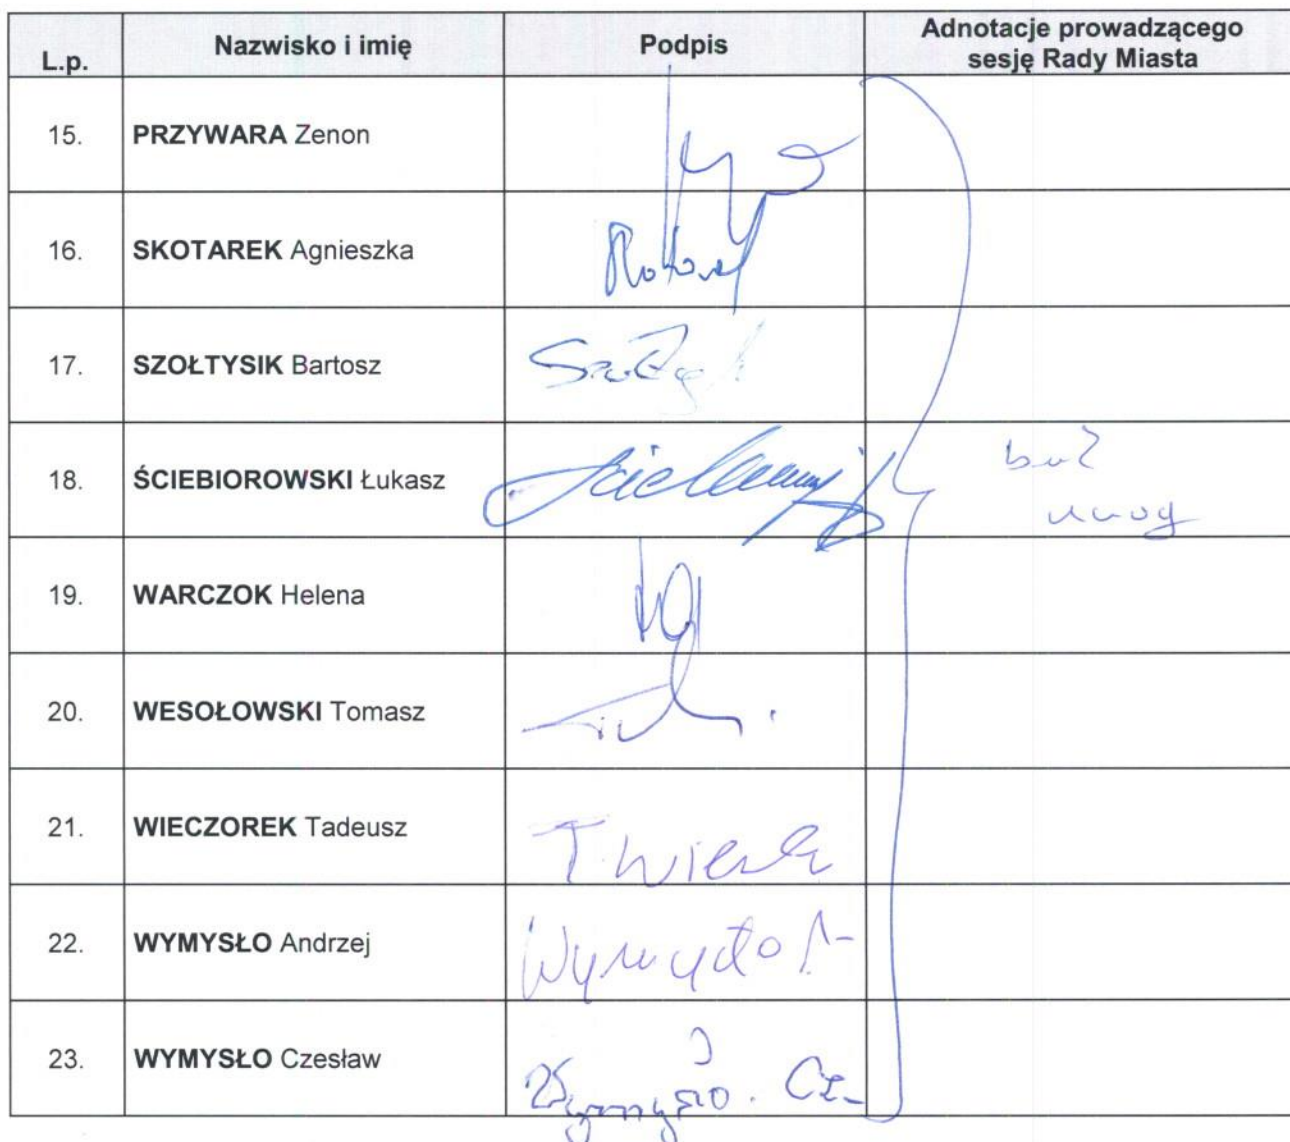 L.p. Nazwisko i imię Podpis Adnotacje prowadzącego
sesję Rady Miasta
15. PRZYWARA Zenon
16. SKOTAREK Agnieszka
17. SZOŁTYSIK Bartosz
18. ŚCIEBIOROWSKI Łukasz
19. WARCZOK Helena
20. WESOŁOWSKI Tomasz
21. WIECZOREK Tadeusz
22. WYMYSŁO Andrzej Wymysło A-
23. WYMYSŁO Czesław Wymysło. Cz.